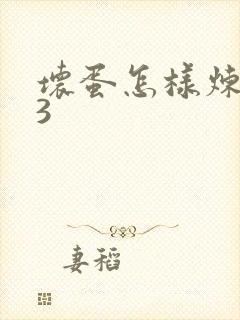 壞蛋怎樣煉
3
妻稻